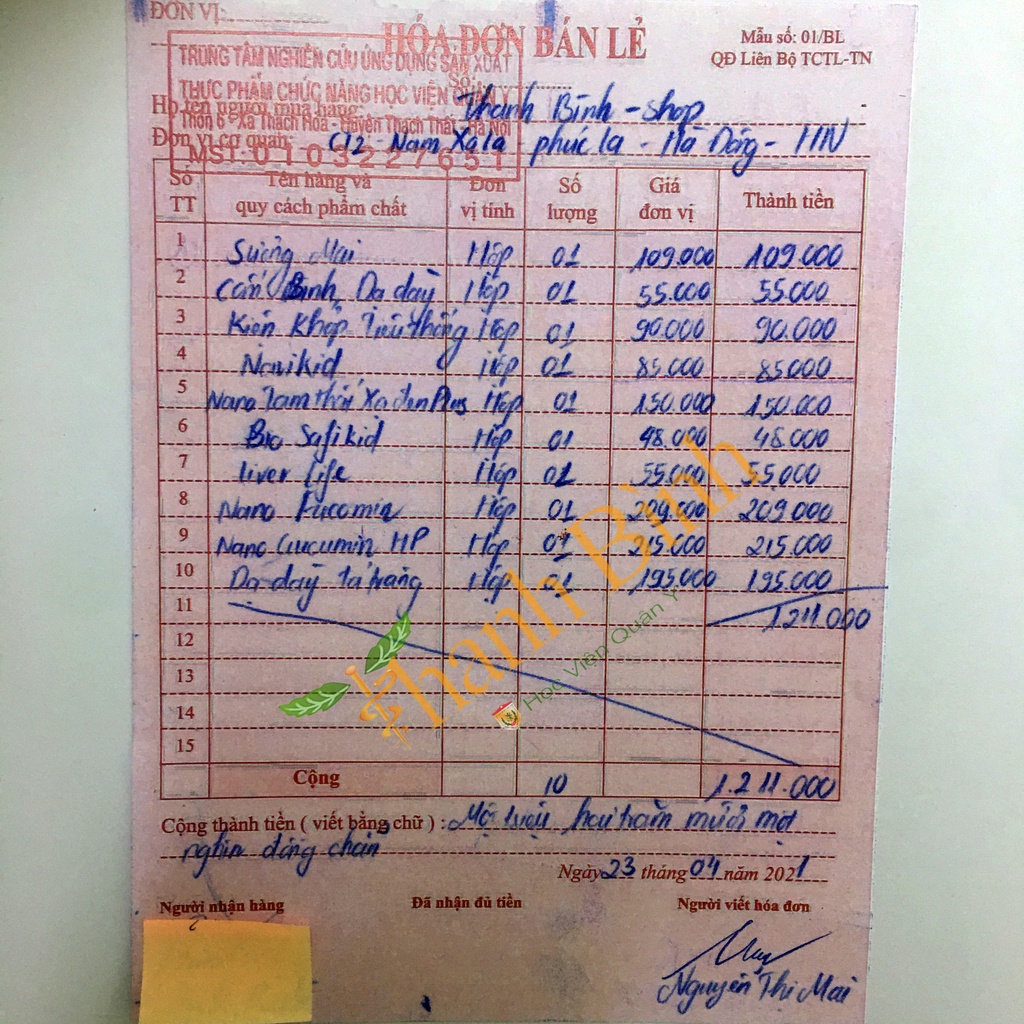 ĐƠN VỊ:
HÓA ĐƠN BÁN LẺ
Mẫu số: 01/BL
QĐ Liên Bộ TCTL-TN
TRUNG TÂM NGHIÊN CỨU ỨNG DỤNG SẢN XUẤT
Số:
THỰC PHẨM CHỨC NĂNG HỌC VIỆN QUÂN Y
Thôn 6 - Xã Thạch Hòa - Huyện Thạch Thất - Hà Nội
MST: 0103227651
Họ tên người mua hàng: Thanh Bình - shop
Đơn vị cơ quan: C12 - Nam Xala - phúc la - Hà Đông - HN
Số TT Tên hàng và quy cách phẩm chất Đơn vị tính Số lượng Giá đơn vị Thành tiền
1 Sương Mai Hộp 01 109.000 109.000
2 Cốm Bình Dạ dày Hộp 01 55.000 55.000
3 Kiện Khớp Tiêu thống Hộp 01 90.000 90.000
4 Novikid Hộp 01 85.000 85.000
5 Nano Tam thất Xạ đen Plus Hộp 01 150.000 150.000
6 Bio Safikid Hộp 01 48.000 48.000
7 liver life Hộp 01 55.000 55.000
8 Nano Fucomin Hộp 01 209.000 209.000
9 Nano Curcumin HP Hộp 01 215.000 215.000
10 Dạ dày tá tràng Hộp 01 195.000 195.000
11 1.211.000
12
13
14
15
Thanh Bình
Học Viện Quân Y
Cộng 10 1.211.000
Cộng thành tiền ( viết bằng chữ ) : Một triệu hai trăm mười một
nghìn đồng chẵn
Ngày 23 tháng 04 năm 2021
Người nhận hàng Đã nhận đủ tiền Người viết hóa đơn
Nguyễn Thị Mai